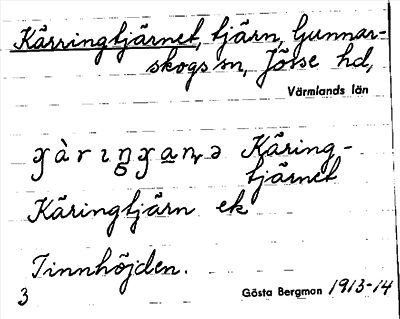 Kärringtjärnet, tjärn, Gunnar-
skogs sn, Jösse hd,
Värmlands län
Käring-
tjärnet
Käringtjärn ek
Tinnhöjden.
3 Gösta Bergman 1913-14